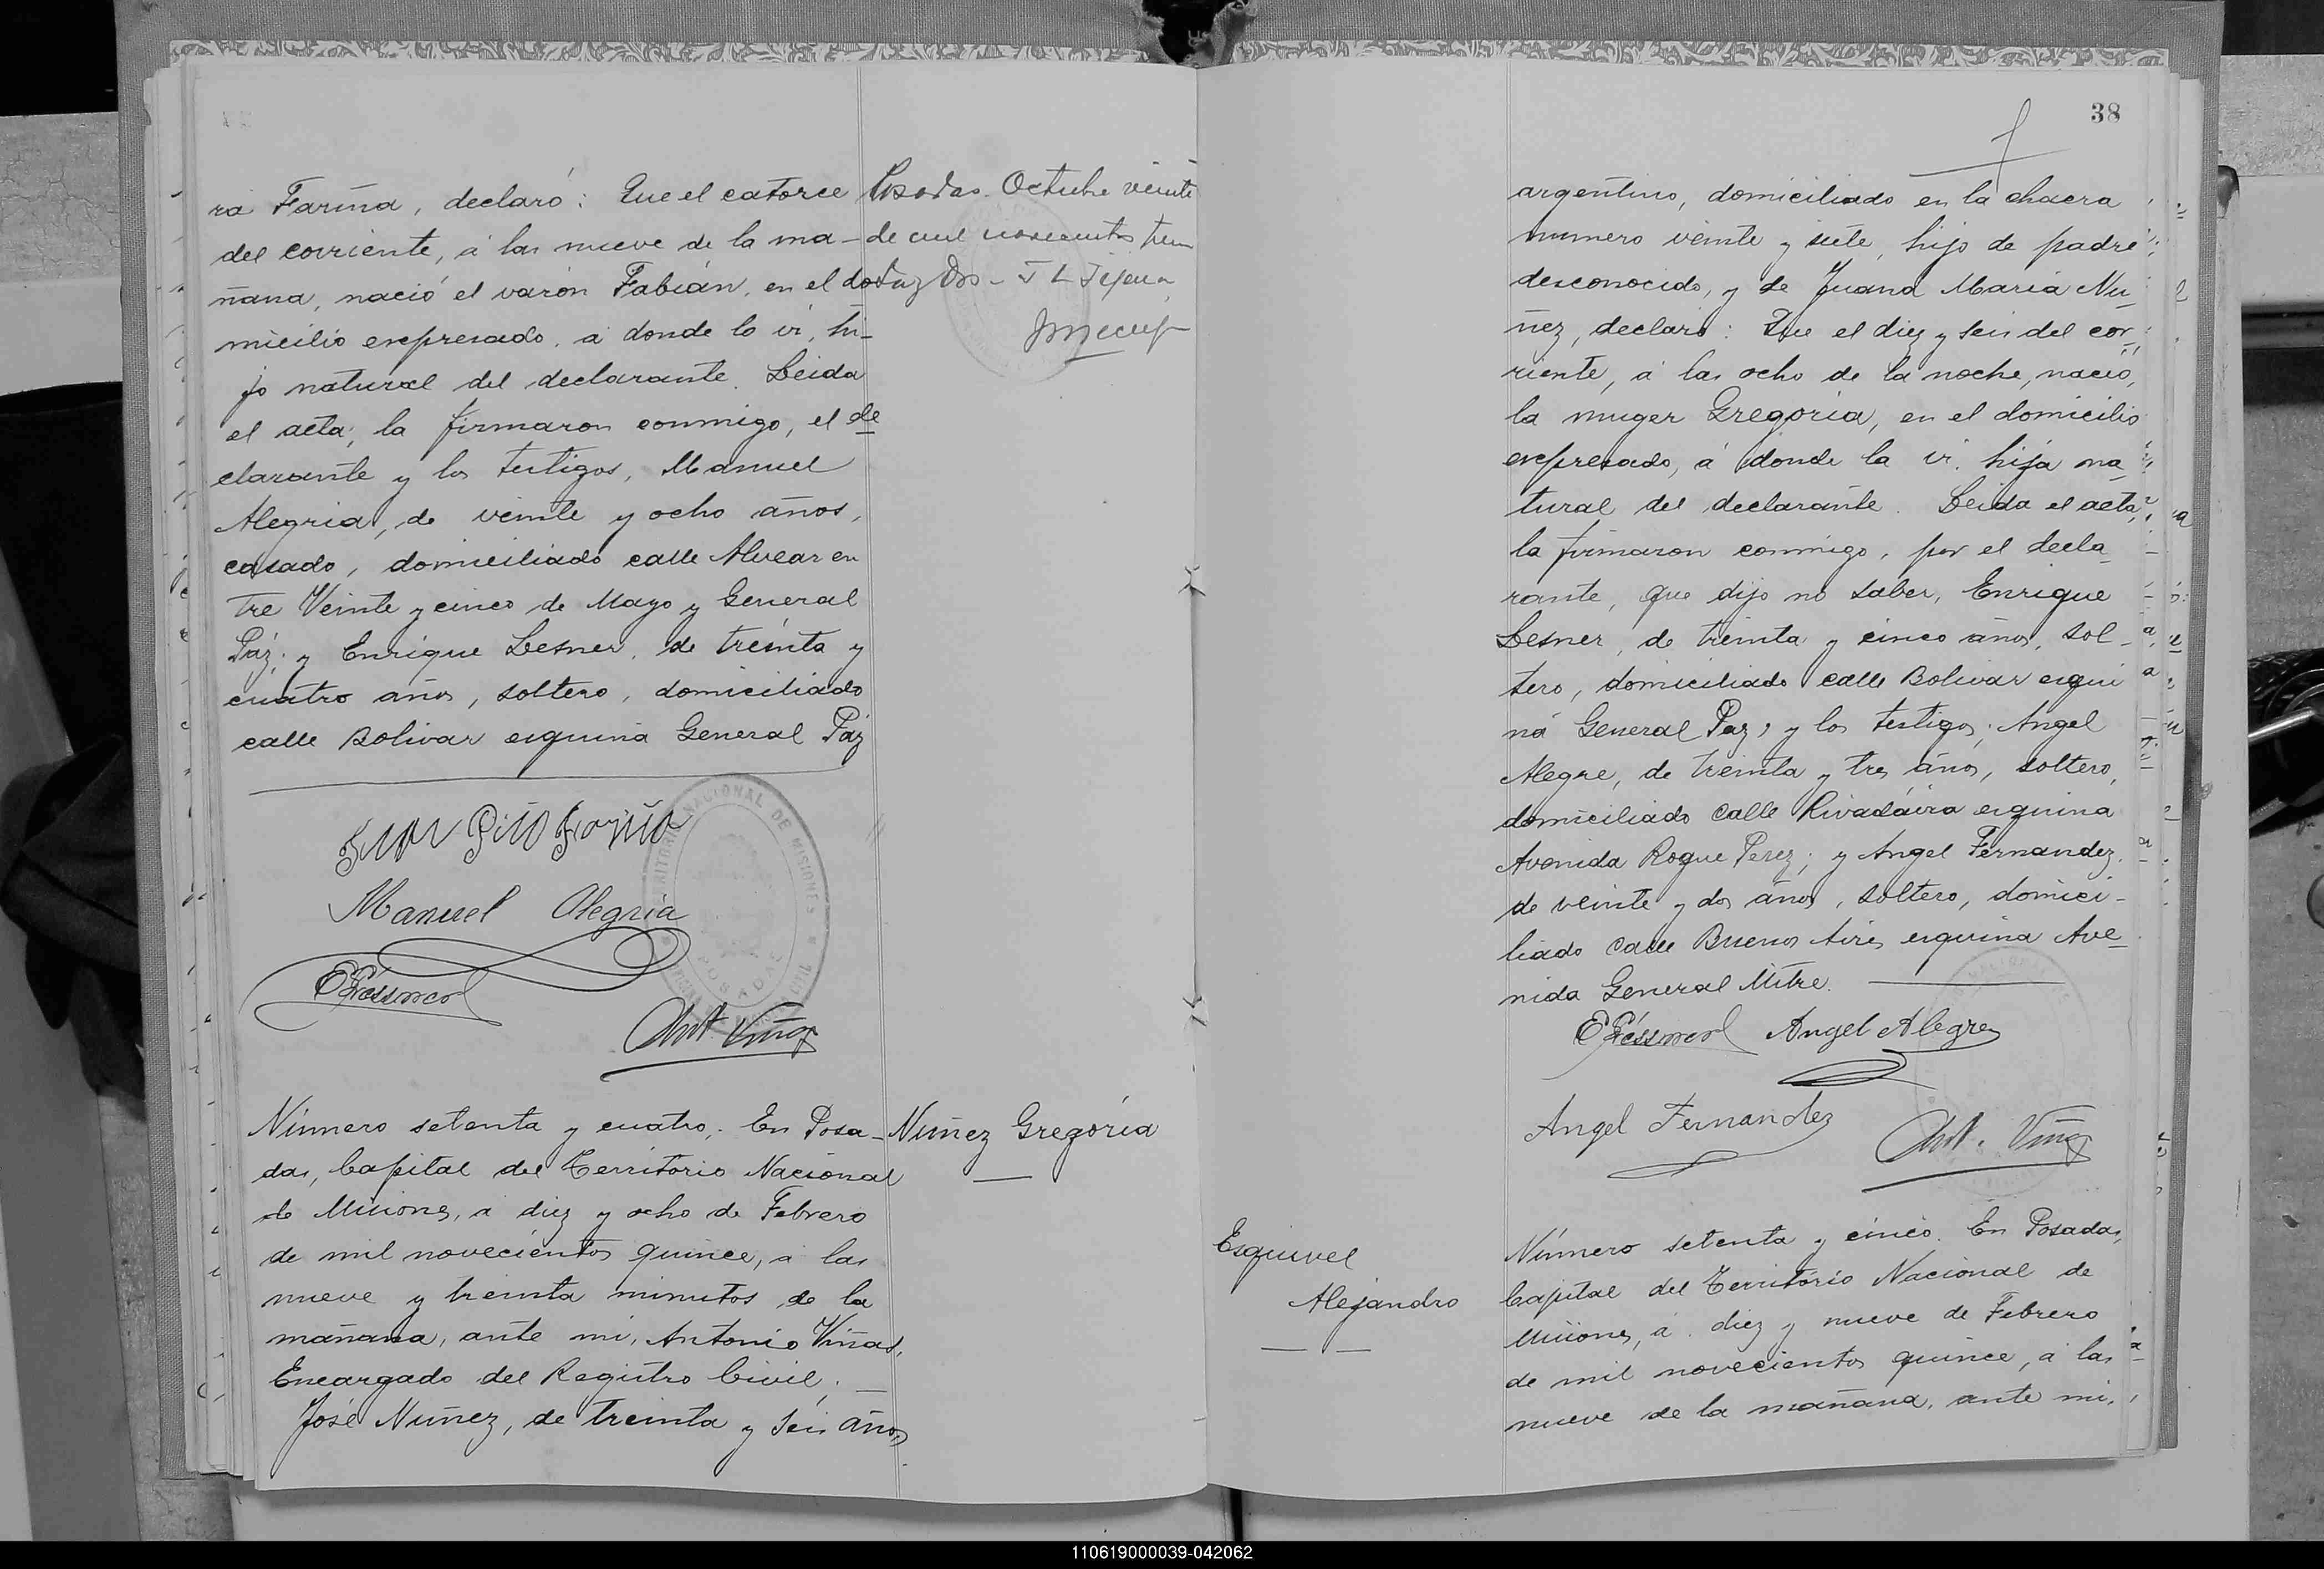 ra Fariña, declaró: Que el catorce
del corriente, á las nueve de la ma-
ñana, nació el varón Fabián, en el do
micilio expresado, a donde lo vi, hi-
jo natural del declarante. Leida
el acta, la firmaron conmigo, el de
clarante y los testigos, Manuel
Alegria, de veinte y ocho años,
casado, domiciliado calle Alvear en
tre Veinte y cinco de Mayo y General
Páz; y Enrique Lesner, de treinta y
cuatro años, soltero, domiciliado
calle Bolivar esquina General Páz
Posadas Octubre veinte
de mil novecientos
Manuel Alegria
Ant. Viñas
TERRITORIO NACIONAL DE MISIONES
POSADAS
Número setenta y cuatro. En Posa-
das, Capital del Territorio Nacional
de Misiones, a diez y ocho de Febrero
de mil novecientos quince, a las
nueve y treinta minutos de la
mañana, ante mi, Antonio Viñas,
Encargado del Registro Civil,
José Nuñez, de treinta y seis años,
Nuñez Gregoria
38
argentino, domiciliado en la chacra
numero veinte y siete, hijo de padre
desconocido, y de Juana Maria Nu
ñez, declaró: Que el diez y seis del cor
riente, á las ocho de la noche, nació,
la muger Gregoria, en el domicilio
expresado, á donde la vi, hija na
tural del declarante. Leida el acta,
la firmaron conmigo, por el decla
rante, que dijo no saber, Enrique
Lesner, de treinta y cinco años, sol-
tero, domiciliado calle Bolivar esqui
na General Paz; y los testigos, Angel
Alegre, de treinta y tres años, soltero,
domiciliado calle Rivadavia esquina
Avenida Roque Perez; y Angel Fernandez,
de veinte y dos años, soltero, domici-
liado calle Buenos Aires esquina Ave
nida General Mitre.
Angel Alegre
Angel Fernandez
Ant. Viñas
Esquivel
Alejandro
Número setenta y cinco. En Posadas,
Capital del Territorio Nacional de
Misiones, á diez y nueve de Febrero
de mil novecientos quince, á las
nueve de la mañana, ante mi,
110619000039-042062